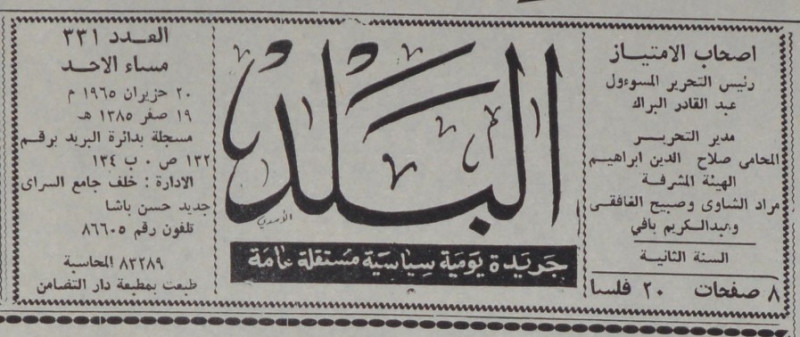 اصحاب الامتياز
رئيس التحرير المسوءول
عبد القادر البراك
مدير التحرير
المحامي صلاح الدين ابراهيم
الهيئة المشرفة
مراد الشاوى وصبيح الغافقى
وعبدالكريم بافي
السنة الثانية
٨ صفحات ٢٠ فلسا
البلد
جريدة يومية سياسية مستقلة عامة
العدد ٣٣١
مساء الاحد
٢٠ حزيران ١٩٦٥ م
١٩ صفر ١٣٨٥ هـ
مسجلة بدائرة البريد برقم
١٣٢ ص ٠ ب ١٣٤
الادارة : خلف جامع السراى
جديد حسن باشا
تلفون رقم ٨٦٦٠٥
٨٢٢٨٩ المحاسبة
طبعت بمطبعة دار التضامن